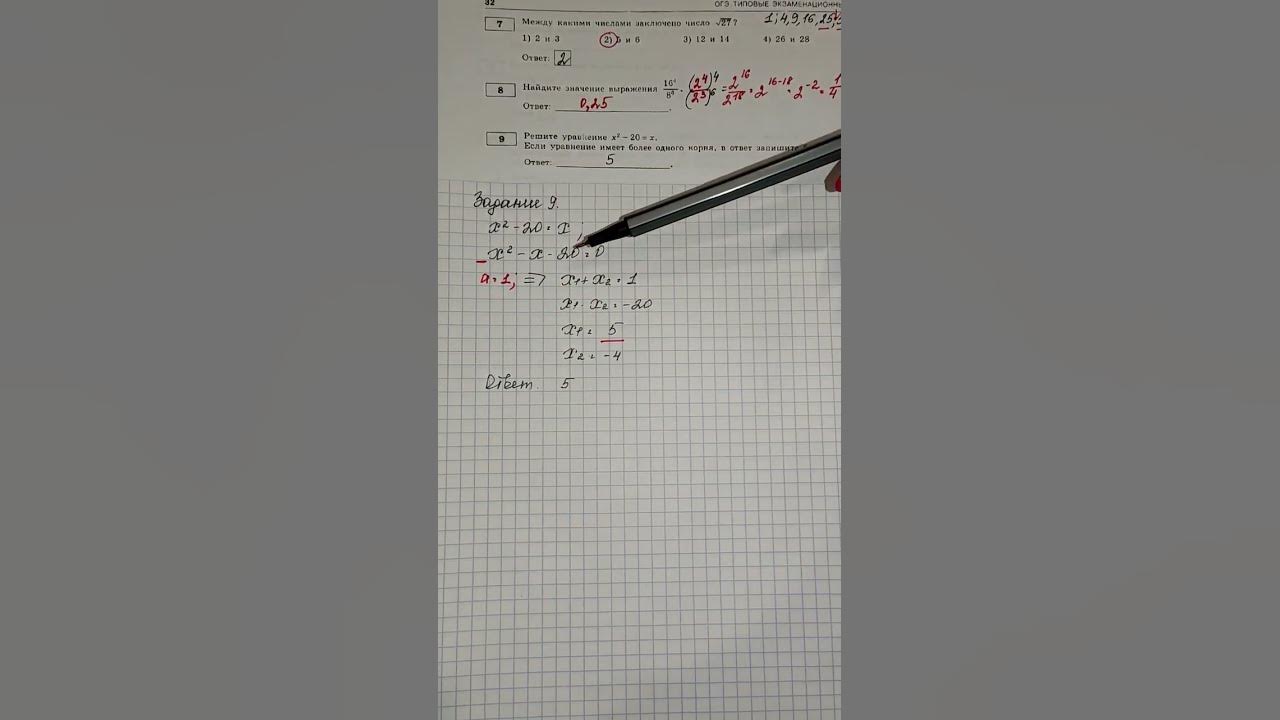 32 ОГЭ ТИПОВЫЕ ЭКЗАМЕНАЦИОННЫ
7 Между какими числами заключено число √27? 1; 4, 9, 16, 25,
1) 2 и 3 2) 5 и 6 3) 12 и 14 4) 26 и 28
Ответ: 2
8 Найдите значение выражения 16⁴/8⁶ = (2⁴)⁴/(2³)⁶ = 2¹⁶/2¹⁸ = 2¹⁶⁻¹⁸ = 2⁻² = 1/4
Ответ: 0,25.
9 Решите уравнение x² − 20 = x.
Если уравнение имеет более одного корня, в ответ запишите
Ответ: 5.
Задание 9.
x² - 20 = x ;
x² - x - 20 = 0
a = 1; => x₁ + x₂ = 1
x₁ · x₂ = -20
x₁ = 5
x₂ = -4
Ответ. 5